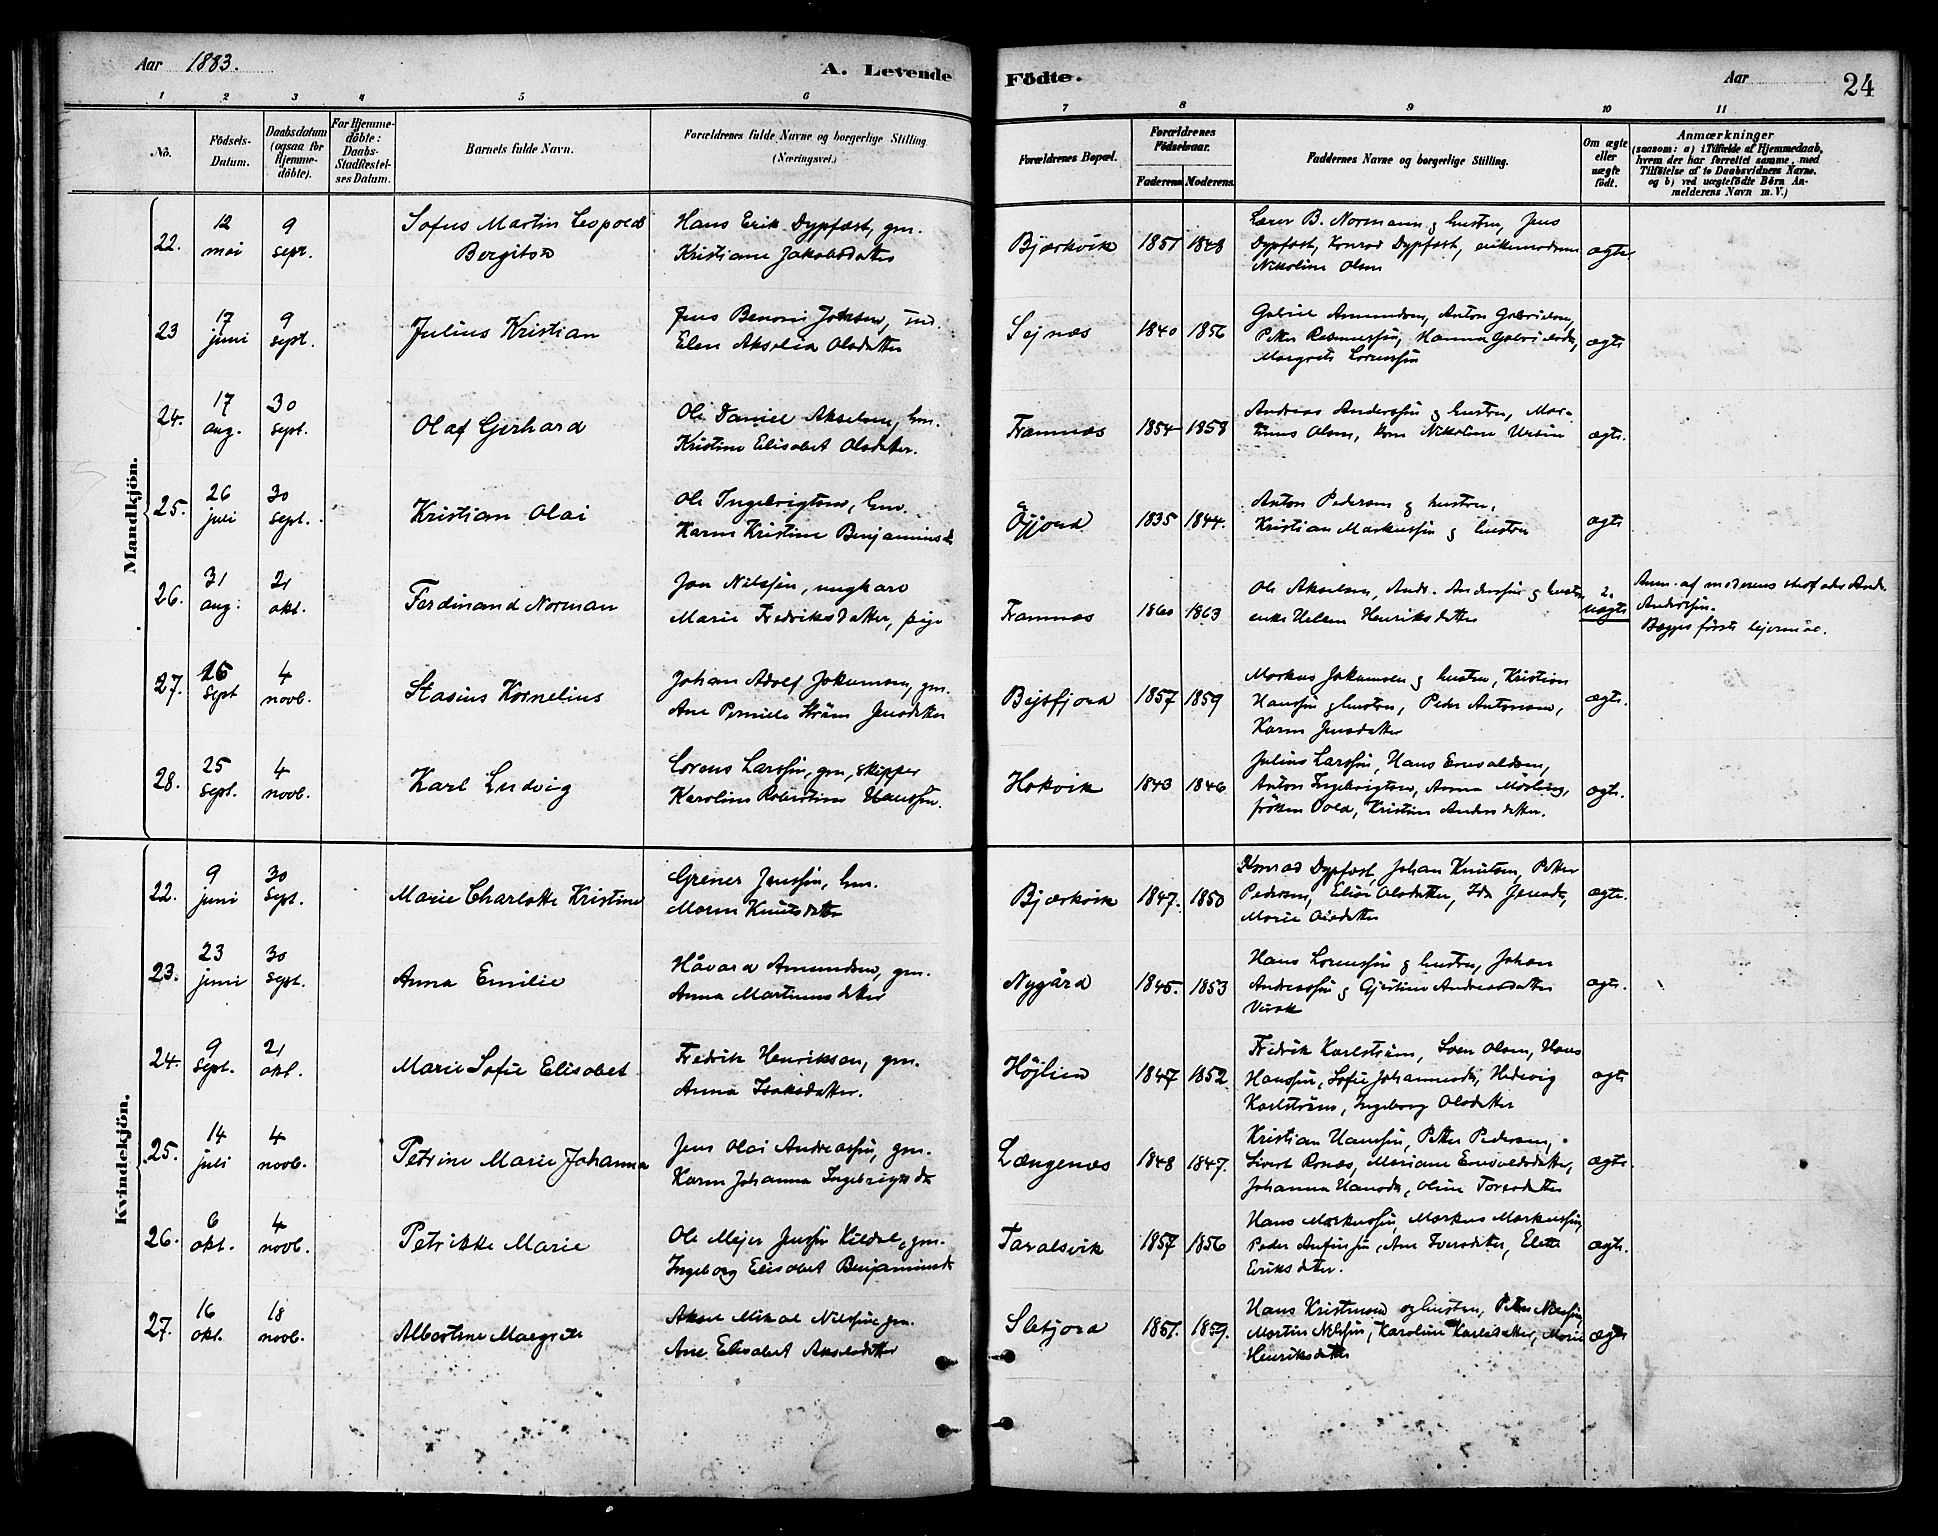 Aar 1883.
A. Levende
Födte.
Aar
24
1 2 3 4 5 6 7 8 9 10 11
No.
Födsels-
Datum.
Daabsdatum
(ogsaa for
Hjemme-
döbte).
For Hjemme-
döbte:
Daabs-
Stadfestel-
ses Datum.
Barnets fulde Navn.
Forældrenes fulde Navne og borgerlige Stilling
(Næringsvei.)
Forældrenes Bopæl.
Forældrenes
Födselsaar.
Faderens. Moderens.
Faddernes Navne og borgerlige Stilling.
Om ægte
eller
uægte
födt.
Anmærkninger
(saasom: a) i Tilfælde af Hjemmedaab,
hvem der har forrettet samme, med
Tilföielse af to Daabsvidners Navne.
og b) ved uægtefödte Börn An-
melderens Navn m. V.)
Mandkjön.
22.
12
mai
9
sept.
Sofus Martin Leopold
Bergiton
Hans Erik Dypfæst, gm.
Kristiane Jakobsdatter
Bjærkvik
1851 1848
Lærer B. Normann g hustru, Jens
Dypfæst, Konrad Dypfæst, enkemadam
Nikoline Olsen
ægte
23
17
juni
9
sept.
Julius Kristian
Jens Benoni Johnsen, ind.
Elen Akselia Olsdatter
Sejnæs
1840 1856
Gabriel Amundsen, Anton Gabrielsen,
Petter Rasmussen, Hanna Gabrielsdr,
Margrete Lorenssen
ægte
24.
17
aug.
30
sept.
Olaf Gerhard
Ole Daniel Akselsen, hm.
Kristine Elisabet Olsdatter.
Framnæs
1854 1858
Andreas Anderssen g hustru, Mar-
tinus Olsen, Nikoline
ægte.
25.
26
juli
30
sept.
Kristian Olai
Ole Ingebrigtsen, hm.
Karen Kristine Benjaminsd.
Øjjord
1835 1844.
Anton Pedersen g hustru,
Kristian Markussen g hustru
ægte
26.
31
aug.
21
okt.
Ferdinand Norman
Jon Nilssen, ungkarl
Marie Fredriksdatter, pige
Framnæs
1860 1863
Ole Akselsen, Andr. Anderssen g hustru
enke Helene Henriksdatter
2.
uægte
Anm. af moderens Andr.
Anderssen.
Begges förste lejermål.
27.
26
sept
4
novb.
Stasius Kornelius
Johan Adolf Jokumsen, gm.
Ane Pernille Ström Jensdatter
Bejsfjord
1857 1859
Markus Jokumsen g hustru, Kristian
Hanssen g hustru, Peder Antonsen,
Karen Jensdatter
ægte.
28.
25
sept.
4
novb.
Karl Ludvig
Lorens Larssen, gm, skipper
Karoline Robertine Hanssen.
Hokvik
1843 1846
Julius Larssen, Hans Enevaldsen,
Anton Ingebrigtsen, Anna Mörling,
fröken Vold, Kristine Andersdatter.
ægte.
Kvindekjön.
22.
9
juni
30
sept.
Marie Charlotte Kristine
Grener Jenssen, hm.
Maren Knutsdatter
Bjærkvik
1847. 1850
Konrad Dypfæst, Johan Knutsen, Peter
Pedersen, Elise Olsdatter, Ida Jensdr,
Marie Olsdatter
ægte.
23.
23
juni
30
sept.
Anna Emilie
Håvard Amundsen, gm.
Anna Martinusdatter
Nygård
1845. 1853
Hans Lorenssen g hustru, Johan
Andreassen g Gjertine Andreasdatter
ægte.
24.
9
sept.
21
okt.
Marie Sofie Elisabet
Fredrik Henriksen, gm.
Anna Isaksdatter.
Höjlien
1847 1852
Fredrik Karlström, Sven Olsen, Hans
Hanssen, Sofie Johannesdr, Hedevig
Karlström, Ingeborg Olsdatter
ægte
25.
14
juli
4
novb.
Petrine Marie Johanna
Jens Olai Andreassen, gm.
Karen Johanna Ingebrigtsdr
Længenæs
1848 1847.
Kristian Hanssen, Petter Pedersen,
Sivert Rønæs, Mariane Enevaldsdatter,
Johanna Hansdr, Oline Toresdatter
ægte.
26.
6
okt.
4
novb.
Petrikke Marie
Ole Mejer Jenssen Kildal, gm.
Ingeborg Elisabet Benjaminsdr
Taraldsvik
1857 1856
Hans Markussen, Markus Markussen,
Peder Anfinssen, Ane Iversdatter, Elette
Eriksdatter.
ægte.
27.
16
okt.
18
novb.
Albertine Margrete
Aksel Mikal Nilssen gm.
Ane Elisabet Akselsdatter
Sletjord
1851. 1859.
Hans Kristensen og hustru, Peter Nilssen,
Martin Nilssen, Karoline Karlsdatter, Marie
Henriksdatter
ægte